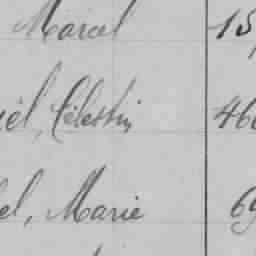 Marcel 15
el, Célestin 46
el, Marie 69